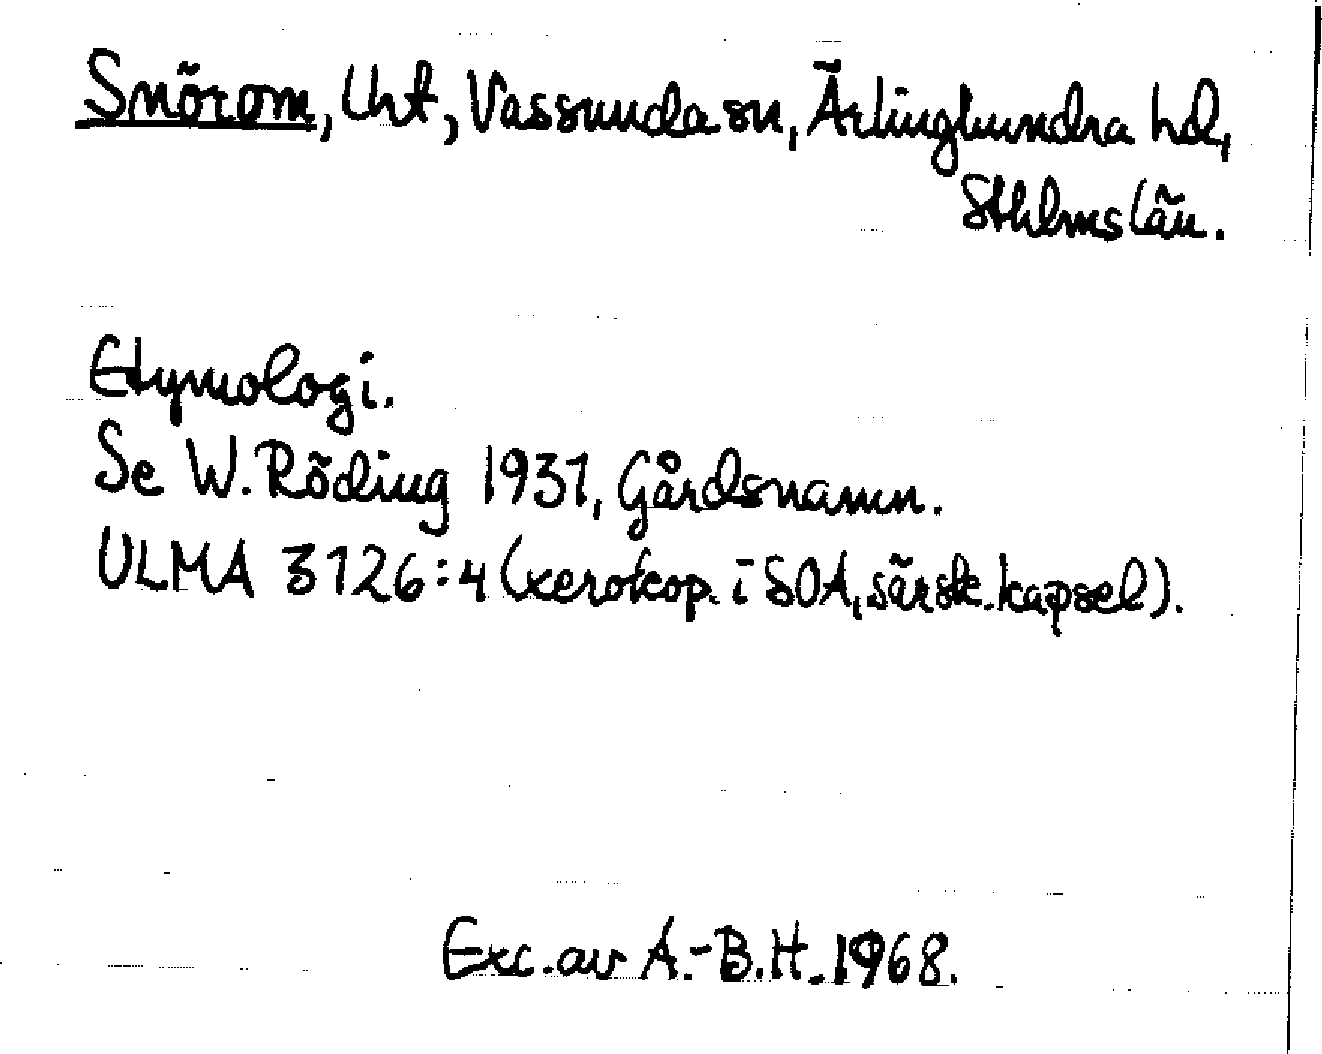 Snörom, Uht, Vassunda sn, Ärlinghundra hd,
Sthlms län.
Etymologi.
Se W. Röding 1931, Gårdsnamn.
ULMA 3126:4 (xerokop. i SOA, särsk. kapsel).
Exc. av A.-B.H. 1968.